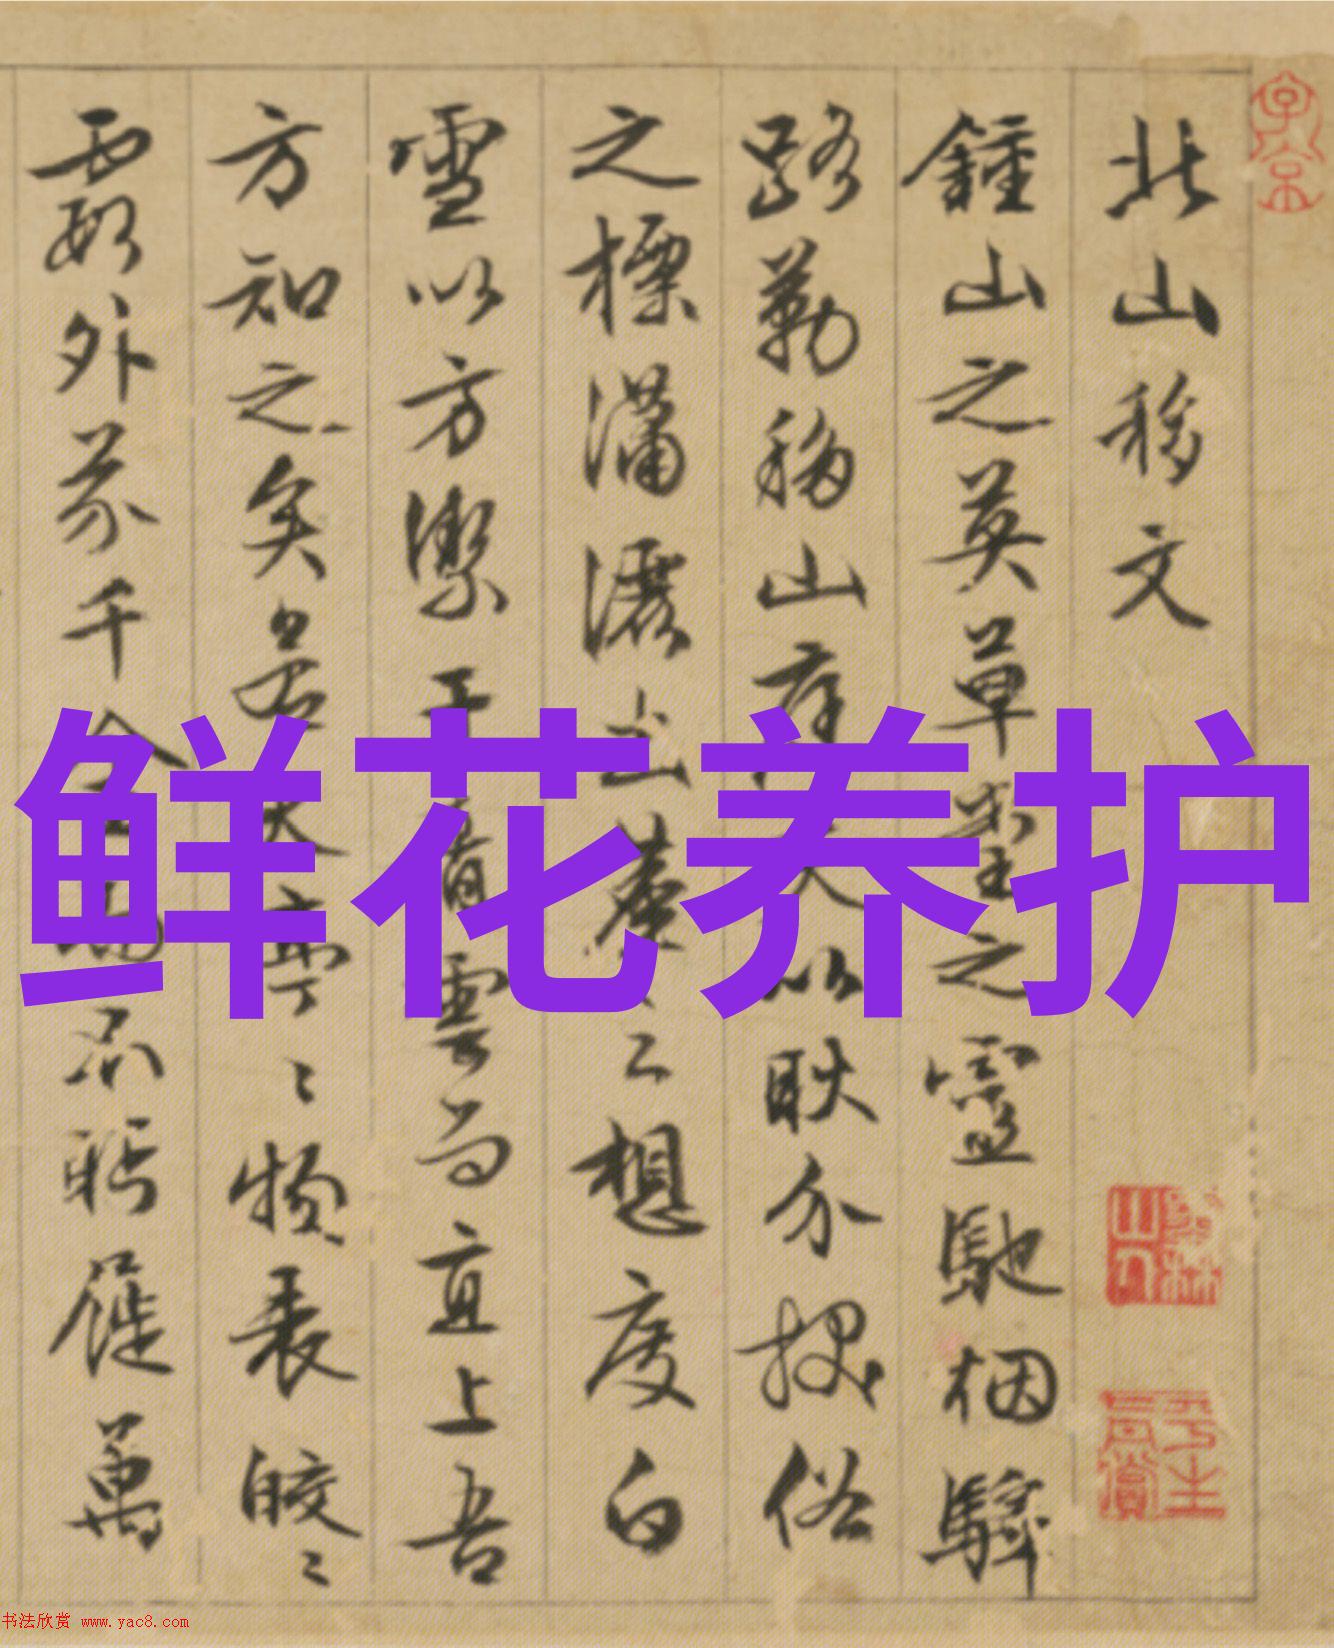 北山移文
鍾山之英草堂之靈馳烟驛
路勒移山庭夫以耿介拔俗
之標瀟灑出塵之想度白
雪以方潔干青雲而直上吾
方知之矣若其亭〻物表皎〻
霞外芥千金而不眄屣萬
鲜花养护
子京
墨林山人
平生真賞
书法欣赏 www.yac8.com